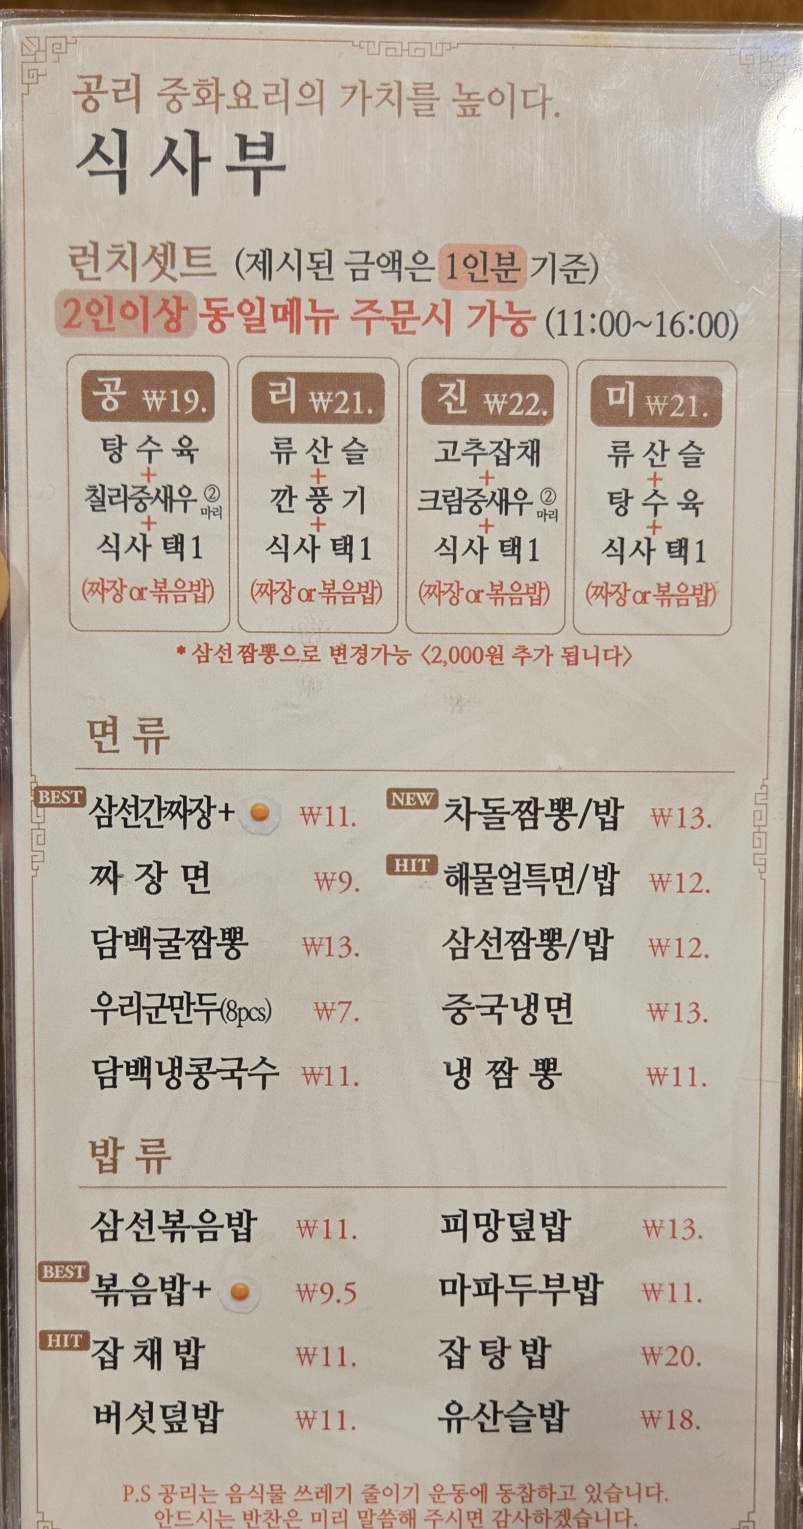 공리 중화요리의 가치를 높이다.
식사부
런치셋트 (제시된 금액은 1인분 기준)
2인이상 동일메뉴 주문시 가능 (11:00~16:00)
공 ₩19.
탕수육
+
칠리중새우 ②마리
+
식사 택1
(짜장 or 볶음밥)
리 ₩21.
류산슬
+
깐풍기
+
식사 택1
(짜장 or 볶음밥)
진 ₩22.
고추잡채
+
크림중새우 ②마리
+
식사 택1
(짜장 or 볶음밥)
미 ₩21.
류산슬
+
탕수육
+
식사 택1
(짜장 or 볶음밥)
* 삼선짬뽕으로 변경가능 <2,000원 추가 됩니다>
면류
BEST 삼선간짜장+ ₩11.
NEW 차돌짬뽕/밥 ₩13.
짜장면 ₩9.
HIT 해물얼특면/밥 ₩12.
담백굴짬뽕 ₩13.
삼선짬뽕/밥 ₩12.
우리군만두(8pcs) ₩7.
중국냉면 ₩13.
담백냉콩국수 ₩11.
냉짬뽕 ₩11.
밥류
삼선볶음밥 ₩11.
피망덮밥 ₩13.
BEST 볶음밥+ ₩9.5
마파두부밥 ₩11.
HIT 잡채밥 ₩11.
잡탕밥 ₩20.
버섯덮밥 ₩11.
유산슬밥 ₩18.
P.S 공리는 음식물 쓰레기 줄이기 운동에 동참하고 있습니다.
안드시는 반찬은 미리 말씀해 주시면 감사하겠습니다.